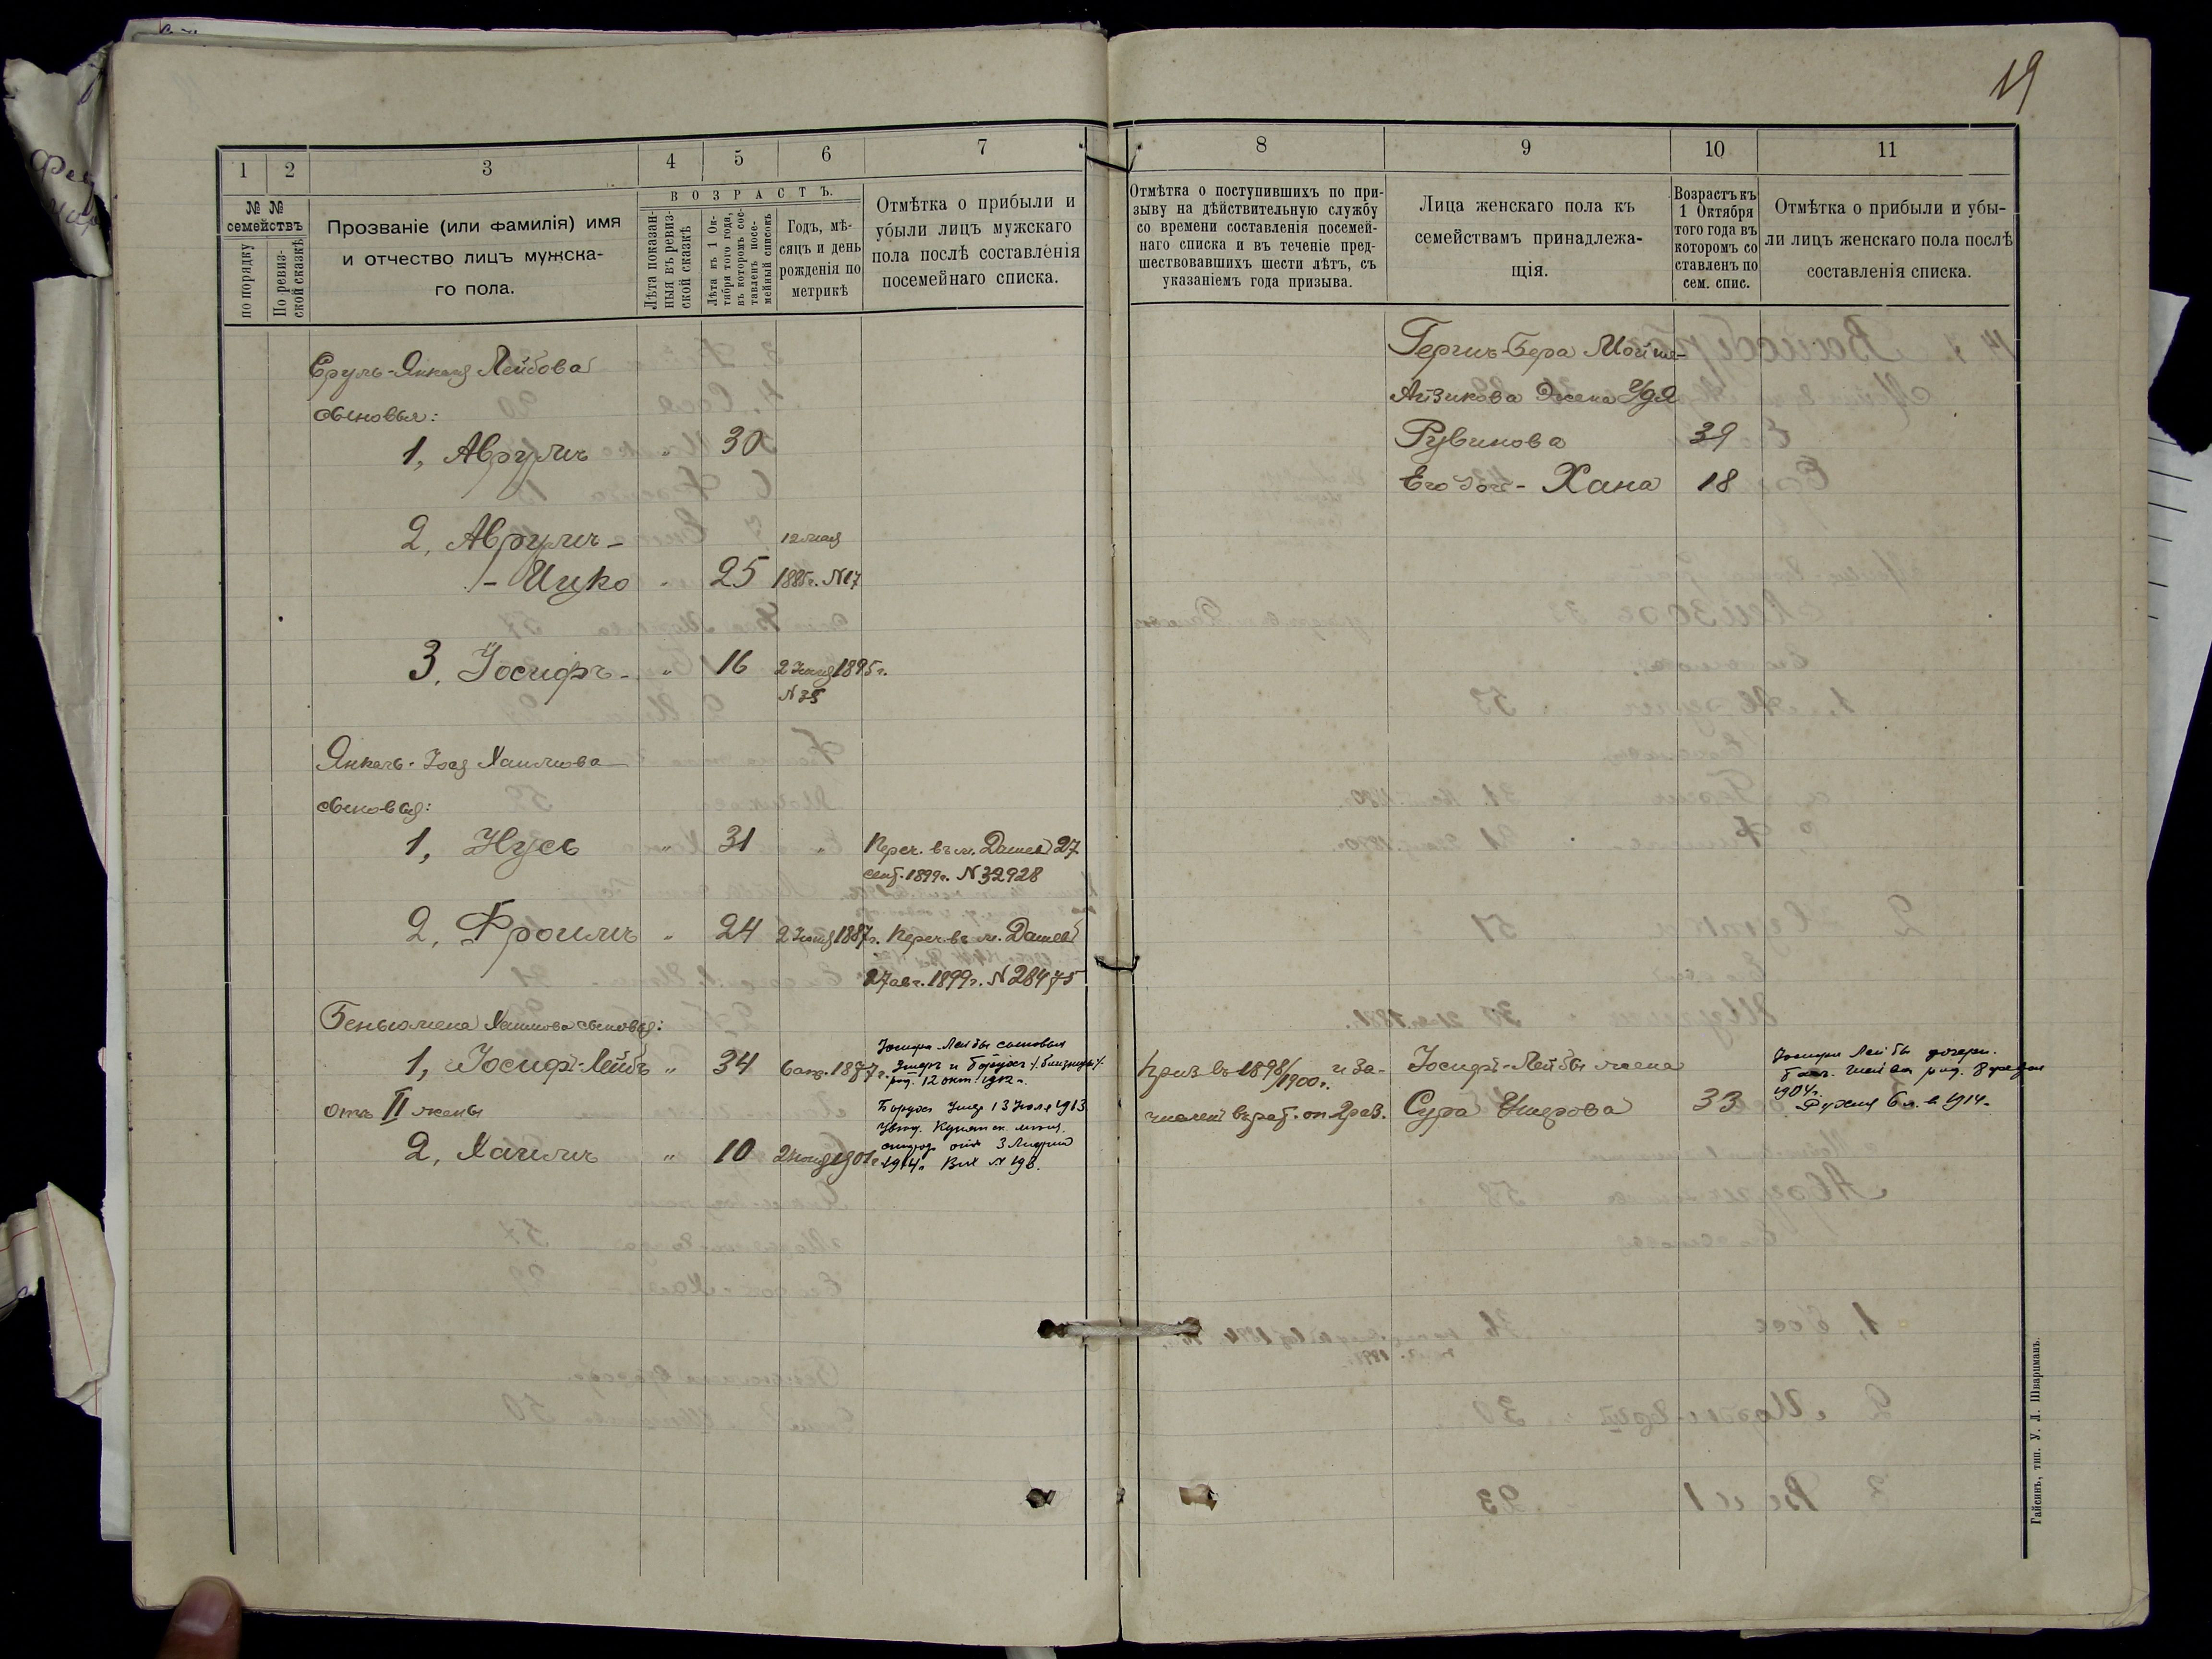 19
1
2
3
4
5
6
7
№ №
семействъ
по порядку
По ревиз-
ской сказкѣ
Прозваніе (или фамилія) имя
и отчество лицъ мужска-
го пола.
ВОЗРАСТЪ.
Лѣта показан-
ныя въ ревиз-
ской сказкѣ
Лѣта къ 1 Ок-
тября того года,
въ которомъ сос-
тавленъ посе-
мейный списокъ
Годъ, мѣ-
сяцъ и день
рожденія по
метрикѣ
Отмѣтка о прибыли и
убыли лицъ мужскаго
пола послѣ составленія
посемейнаго списка.
Сруль-Янкеля Лейбова
сыновья:
1, Аврумъ " 30
2, Аврумъ- 12 мая
-Ицко " 25 1885г. N 17
3, Іосифъ- " 16 2 Іюня 1895г.
N 35
Янкель-Іося Хаимова
сыновья:
1, Нусь " 31 " Переч. въ м. Дашев 27
сент. 1899г. N 32928
2, Фроимъ " 24 2 Іюня 1887г. Переч. въ м. Дашев
27 авг. 1899г. N 28475
Беньюмена Хаимова сыновья:
1, Іосифъ-Лейбъ " 34 6 1877г.
Іосифа-Лейбы сыновья
и Борухъ близнецы
род. 12 окт. 1912г.
отъ II жены
Борухъ 13 Іюля 1913
2, Хаимъ " 10 2 Іюня 1901г.
1914г. N 198.
8
9
10
11
Отмѣтка о поступившихъ по при-
зыву на дѣйствительную службу
со времени составленія посемей-
наго списка и въ теченіе пред-
шествовавшихъ шести лѣтъ, съ
указаніемъ года призыва.
Лица женскаго пола къ
семействамъ принадлежа-
щія.
Возрастъ къ
1 Октября
того года въ
которомъ со
ставленъ по
сем. спис.
Отмѣтка о прибыли и убы-
ли лицъ женскаго пола послѣ
составленія списка.
Гершъ-Бера Мойше-
Айзикова жена Удя
Рувинова 39
Его доч- Хана 18
Приз въ 1898/1900г. и за-
численъ въ рат. оп. 2 раз.
Іосифъ-Лейбы жена
Сура 33
Іосифа Лейбы дочери.
род. 8
1904г.
1914г.
Гайсинъ, тип. У. Л. Шварцманъ.